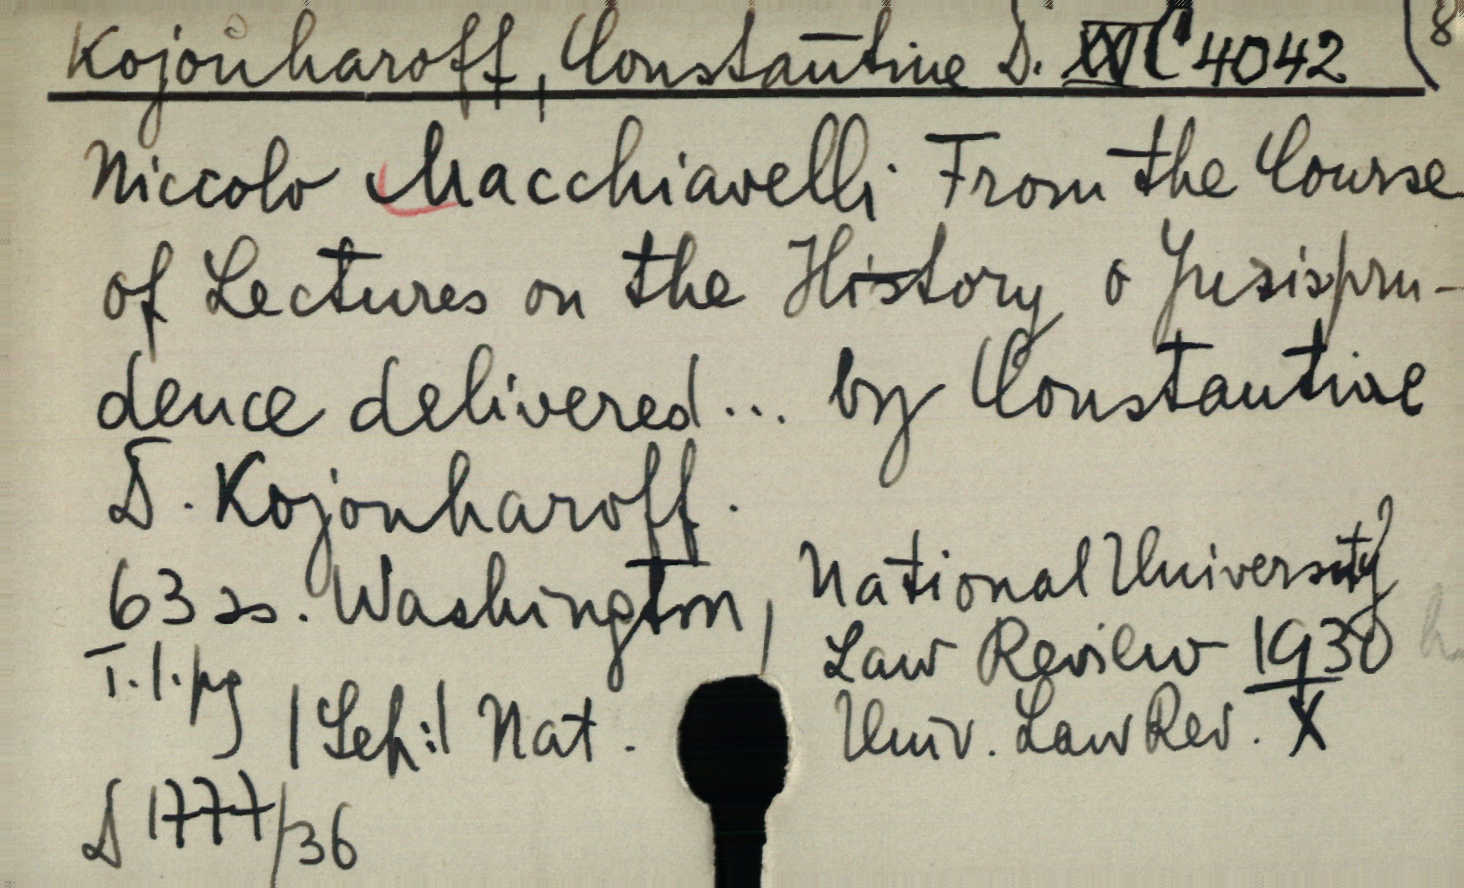 Kojouharoff, Constantine D. XXI C 4042
8
Niccolo Macchiavelli. From the Course
of Lectures on the History o Jurispru-
dence delivered... by Constantine
D. Kojouharoff.
63 ss. Washington, National University
Law Review 1930
T.l.pg |Seh:| Nat. Univ. Law Rev. X
D 1777/36